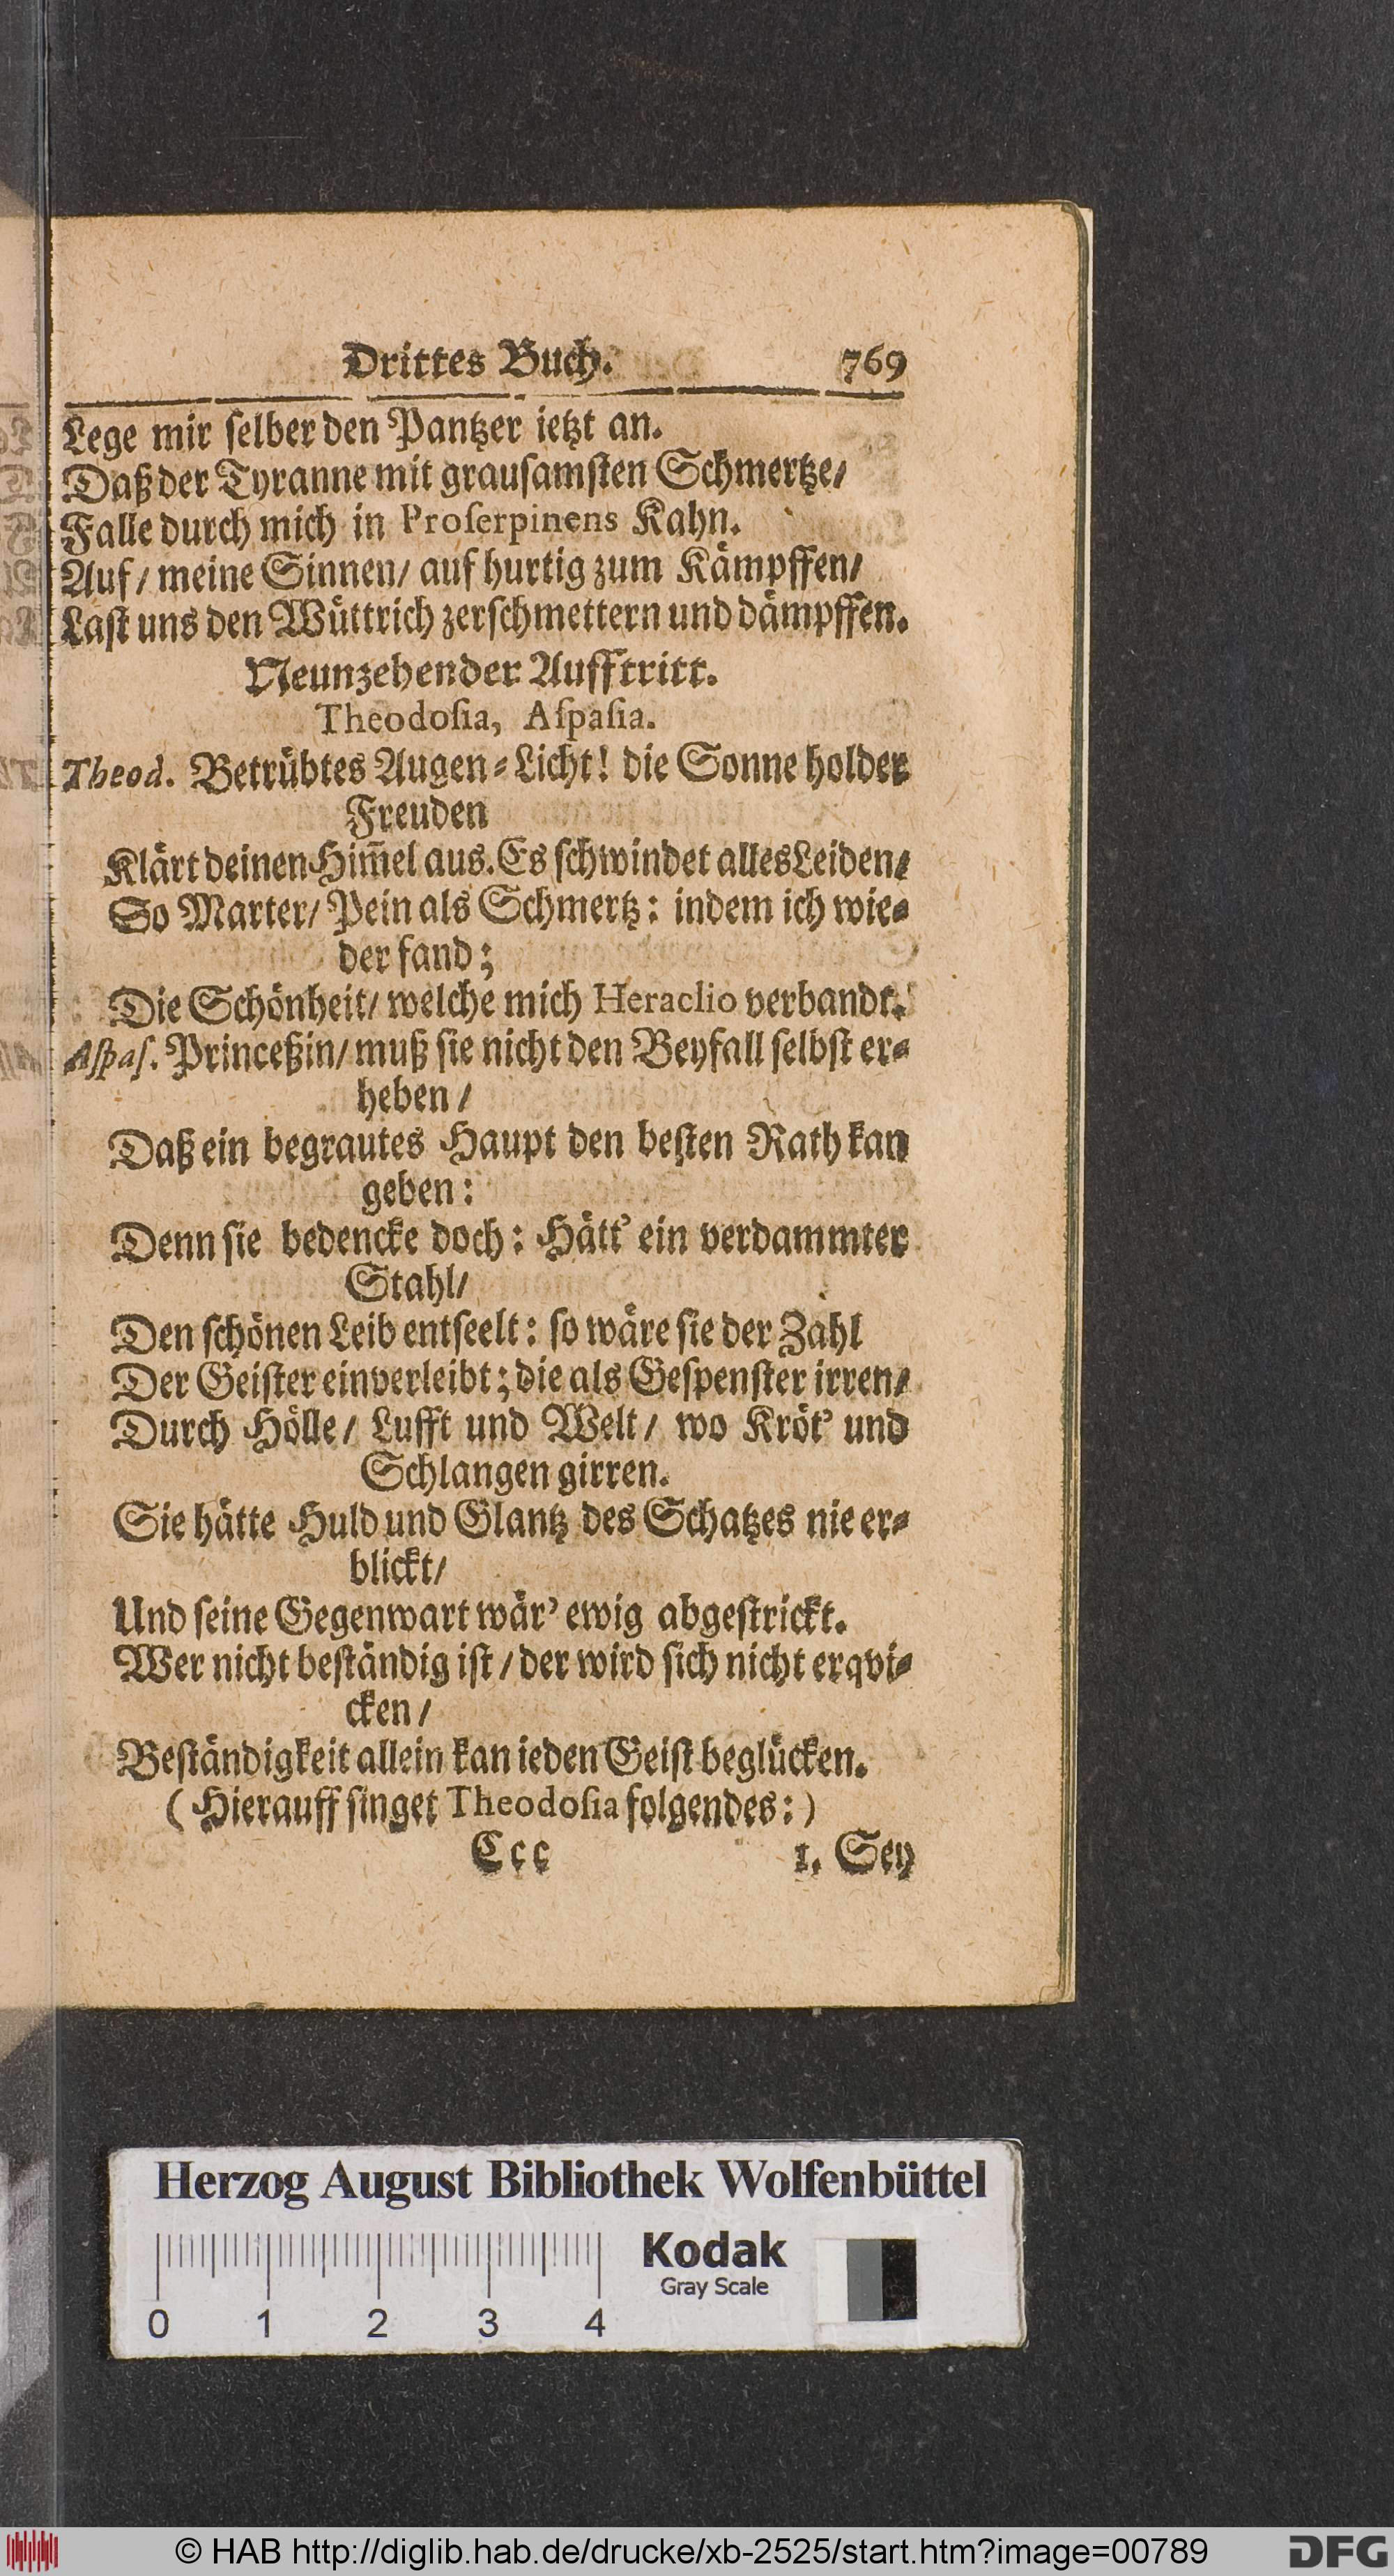 Drittes Buch. 769
Lege mir ſelber den Pantzer ietzt an.
Daß der Tyranne mit grauſamſten Schmertze/
Falle durch mich in Proſerpinens Kahn.
Auf/ meine Sinnen/ auf hurtig zum Kämpffen/
Laſt uns den Wüttrich zerſchmettern und dämpffen.
Neunzehender Aufftritt.
Theodoſia, Aſpaſia.
Theod. Betrübtes Augen-Licht! die Sonne holder
Freuden
Klärt deinen Him̃el aus. Es ſchwindet alles Leiden/
So Marter/ Pein als Schmertz: indem ich wie-
der fand;
Die Schönheit/ welche mich Heraclio verbandt.
Aſpaſ. Princeßin/ muß ſie nicht den Beyfall ſelbſt er-
heben/
Daß ein begrautes Haupt den beſten Rath kan
geben:
Denn ſie bedencke doch: Hätt' ein verdammter
Stahl/
Den ſchönen Leib entſeelt: ſo wäre ſie der Zahl
Der Geiſter einverleibt; die als Geſpenſter irren/
Durch Hölle/ Lufft und Welt/ wo Kröt' und
Schlangen girren.
Sie hätte Huld und Glantz des Schatzes nie er-
blickt/
Und ſeine Gegenwart wär' ewig abgeſtrickt.
Wer nicht beſtändig iſt/ der wird ſich nicht erqvi-
cken/
Beſtändigkeit allein kan ieden Geiſt beglücken.
(Hierauff ſinget Theodoſia folgendes:)
Ccc 1. Sey
Herzog August Bibliothek Wolfenbüttel
Kodak
Gray Scale
0 1 2 3 4
© HAB http://diglib.hab.de/drucke/xb-2525/start.htm?image=00789
DFG